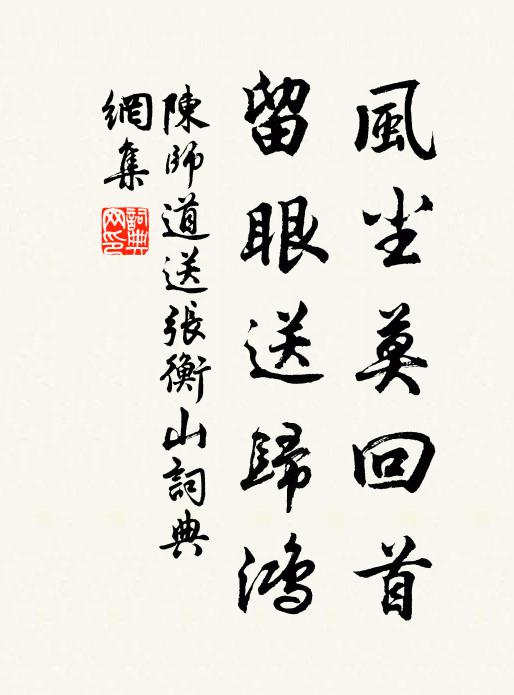 風尘莫回首
留眼送歸鴻
陳師道送張衡山詞典
網集
詞典
网印